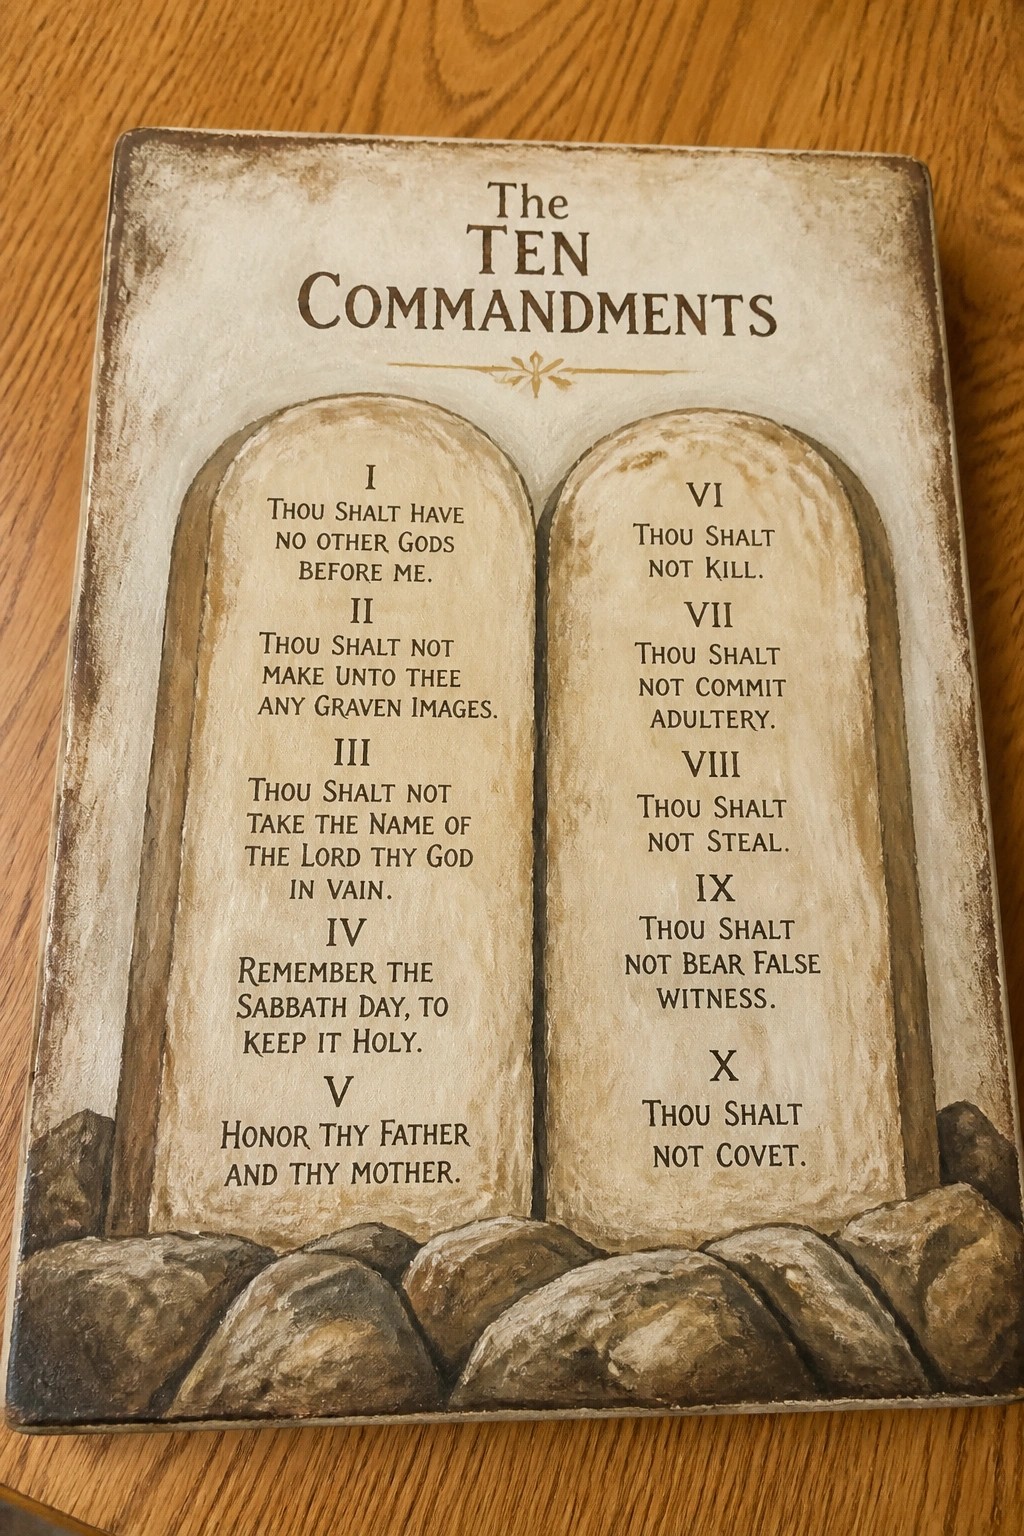 The
TEN
COMMANDMENTS
I
THOU SHALT HAVE
NO OTHER GODS
BEFORE ME.
II
THOU SHALT NOT
MAKE UNTO THEE
ANY GRAVEN IMAGES.
III
THOU SHALT NOT
TAKE THE NAME OF
THE LORD THY GOD
IN VAIN.
IV
REMEMBER THE
SABBATH DAY, TO
KEEP IT HOLY.
V
HONOR THY FATHER
AND THY MOTHER.
VI
THOU SHALT
NOT KILL.
VII
THOU SHALT
NOT COMMIT
ADULTERY.
VIII
THOU SHALT
NOT STEAL.
IX
THOU SHALT
NOT BEAR FALSE
WITNESS.
X
THOU SHALT
NOT COVET.